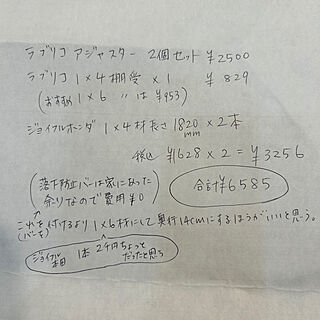 ラブリコ アジャスター 2個セット ¥2500
ラブリコ 1×4棚受 ×1 ¥829
(おすすめ 1×6 〃 は ¥953)
ジョイフルホンダ 1×4材長さ1820mm×2本
税込 ¥1628×2=¥3256
(落下防止バーは家にあった余りなので費用¥0)
合計¥6585
これを(バーを)付けるより1×6材にして奥行14cmにするほうがいいと思う。
ジョイフル本田 1本 2千円ちょっとだったと思う